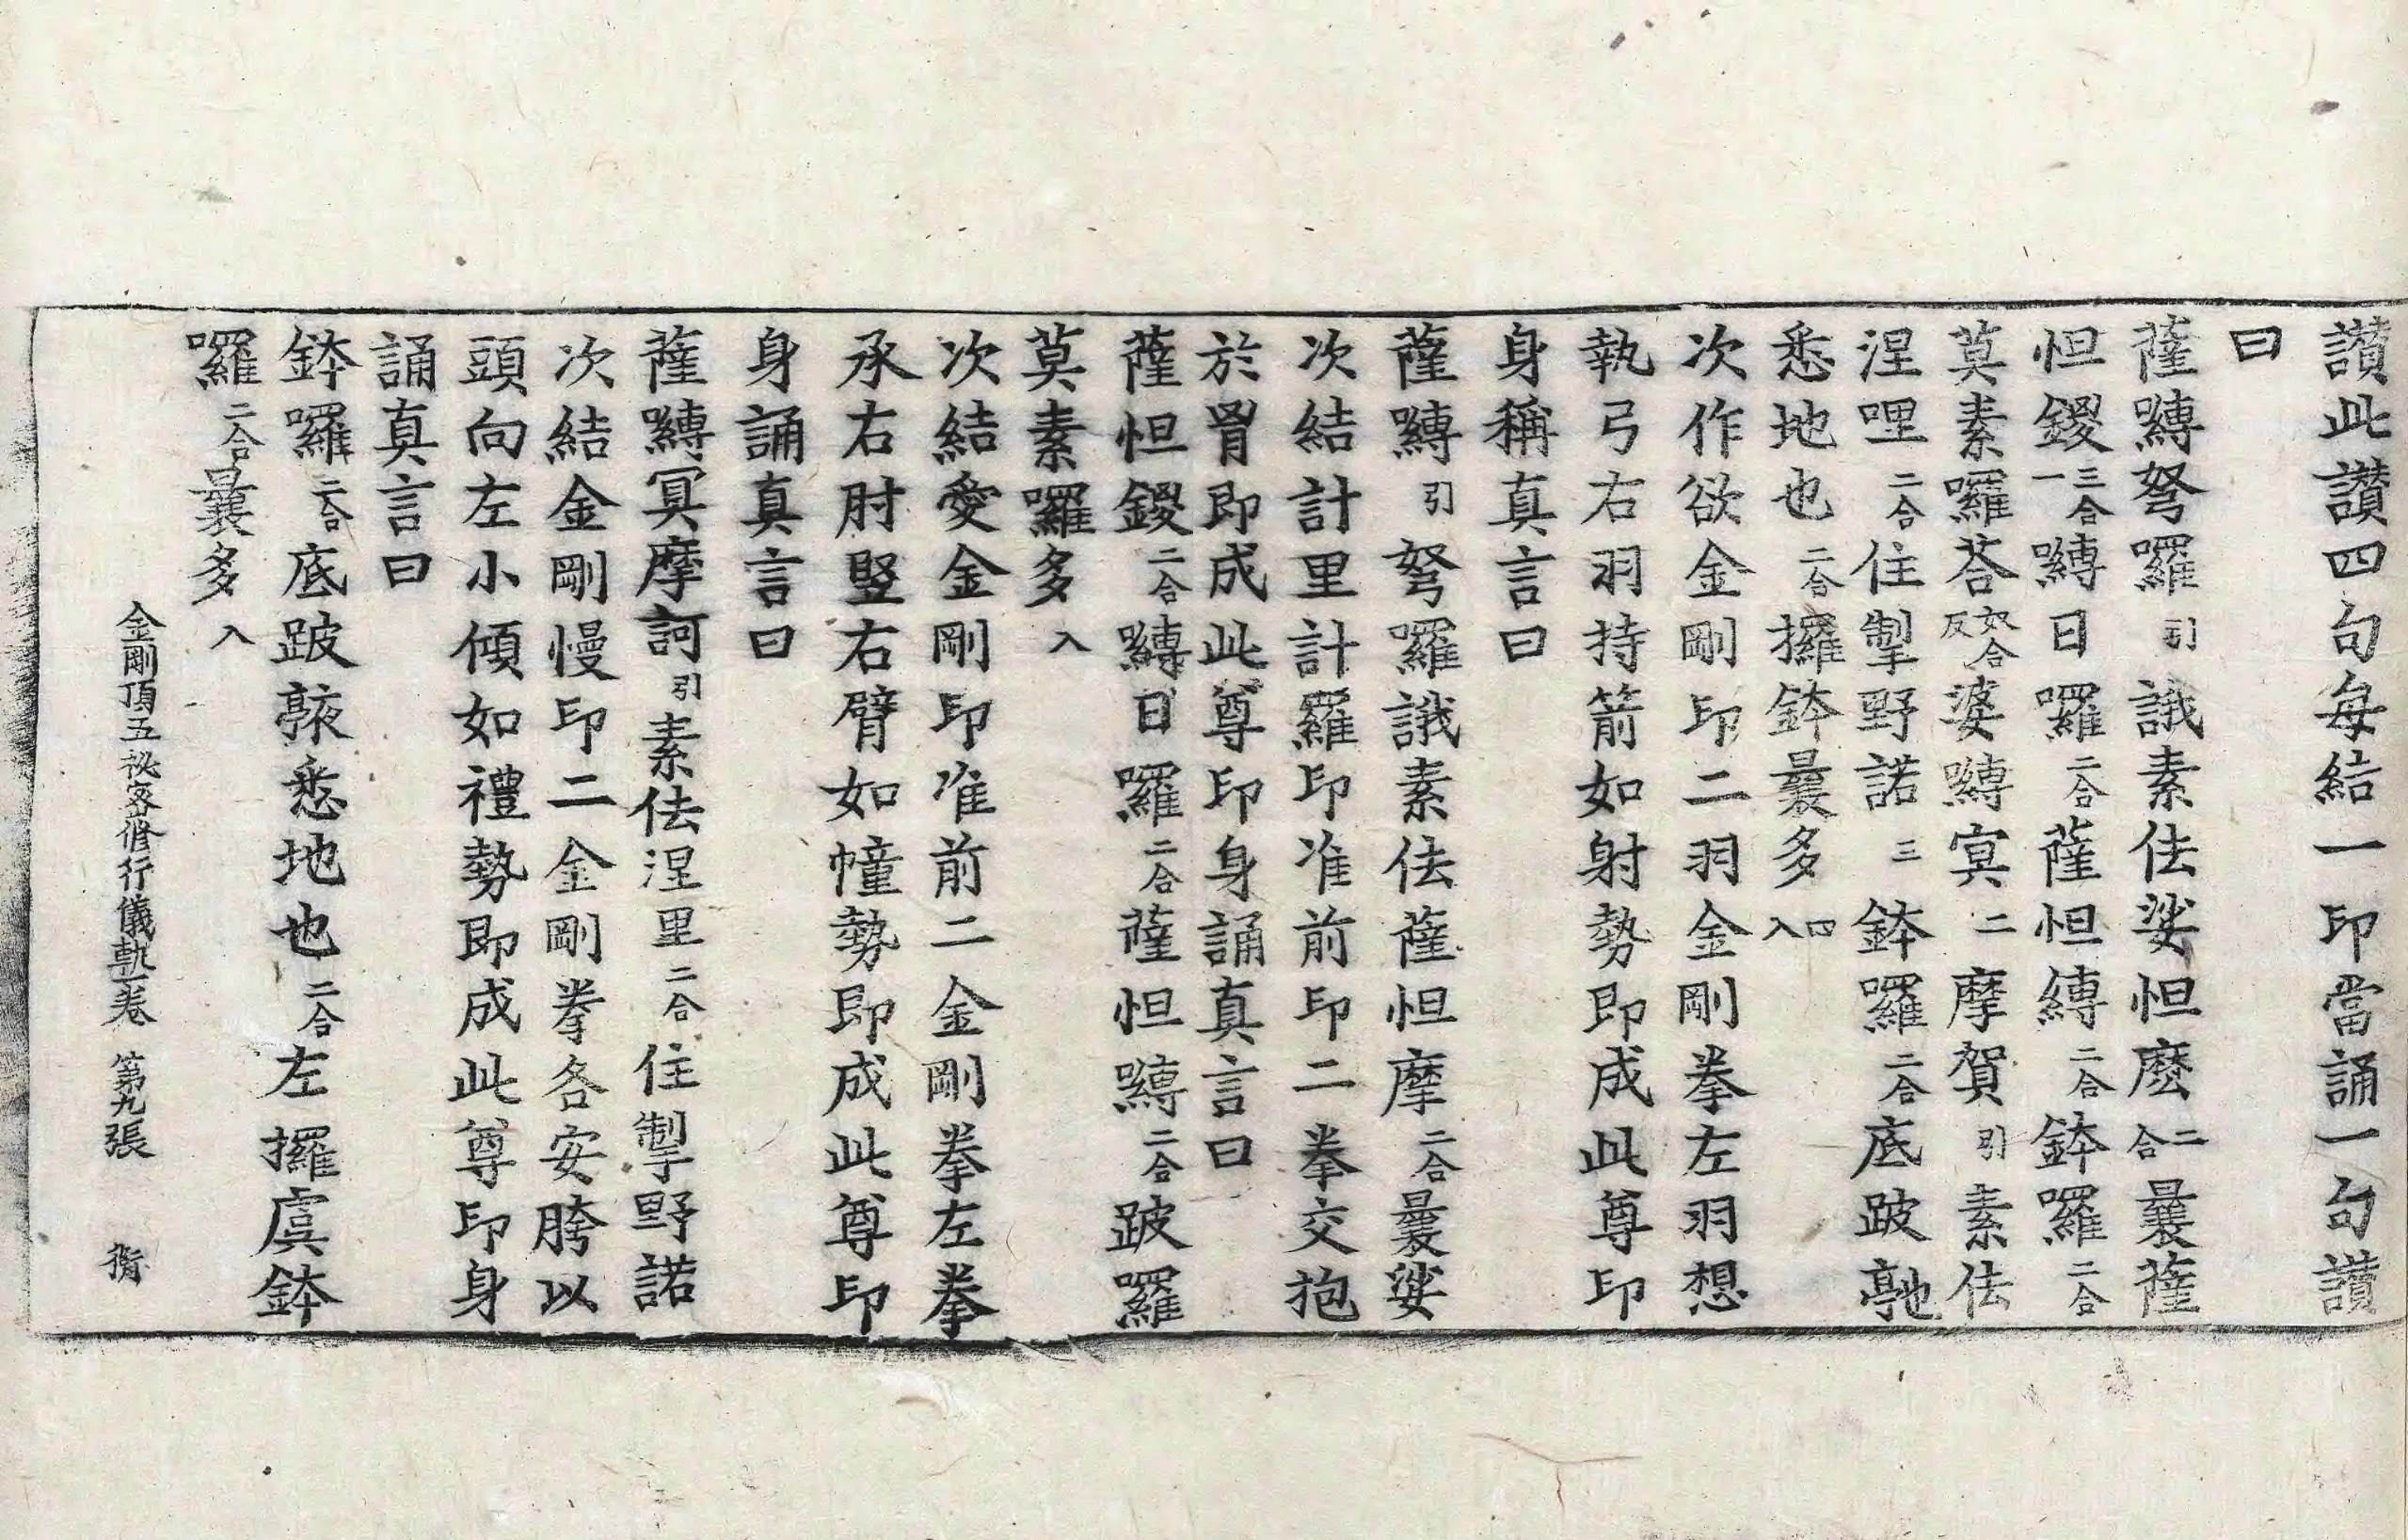 讃此讃四句每結一印當誦一句讃
曰
薩嚩弩囉引誐素佉娑怛麽二合曩薩
怛鑁三合一嚩日囉二合薩怛縛二合鉢囉二合
莫素囉荅如合反婆嚩寘二摩賀引素佉
涅哩二合住掣野諾三鉢囉二合底跛
悉地也二合攞鉢曩多四入
次作欲金剛印二羽金剛拳左羽想
執弓右羽持箭如射勢即成此尊印
身稱真言曰
薩嚩引弩囉誐素佉薩怛摩二合曩娑
次結計里計羅印准前印二拳交抱
於胷即成此尊印身誦真言曰
薩怛鑁二合嚩日囉二合薩怛嚩二合跛羅
莫素囉多入
次結愛金剛印准前二金剛拳左拳
承右肘竪右臂如幢勢即成此尊印
身誦真言曰
薩嚩冥摩訶引素佉涅里二合住掣野諾
次結金剛慢印二金剛拳各安胯以
頭向左小傾如禮勢即成此尊印身
誦真言曰
鉢囉二合底跛悉地也二合左攞虞鉢
囉二合曩多入
金剛頂五祕密修行儀軌一卷 第九張